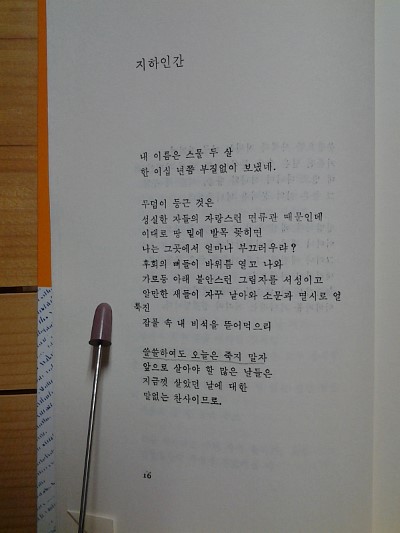 지하인간
내 이름은 스물 두 살
한 이십 년쯤 부질없이 보냈네.
무덤이 둥근 것은
성실한 자들의 자랑스런 면류관 때문인데
이대로 땅 밑에 발목 꽂히면
나는 그곳에서 얼마나 부끄러우랴?
후회의 뼈들이 바위틈 열고 나와
가로등 아래 불안스런 그림자를 서성이고
알만한 새들이 자꾸 날아와 소문과 멸시로 얼
룩진
잡풀 속 내 비석을 뜯어먹으리
쓸쓸하여도 오늘은 죽지 말자
앞으로 살아야 할 많은 날들은
지금껏 살았던 날에 대한
말없는 찬사이므로.
16